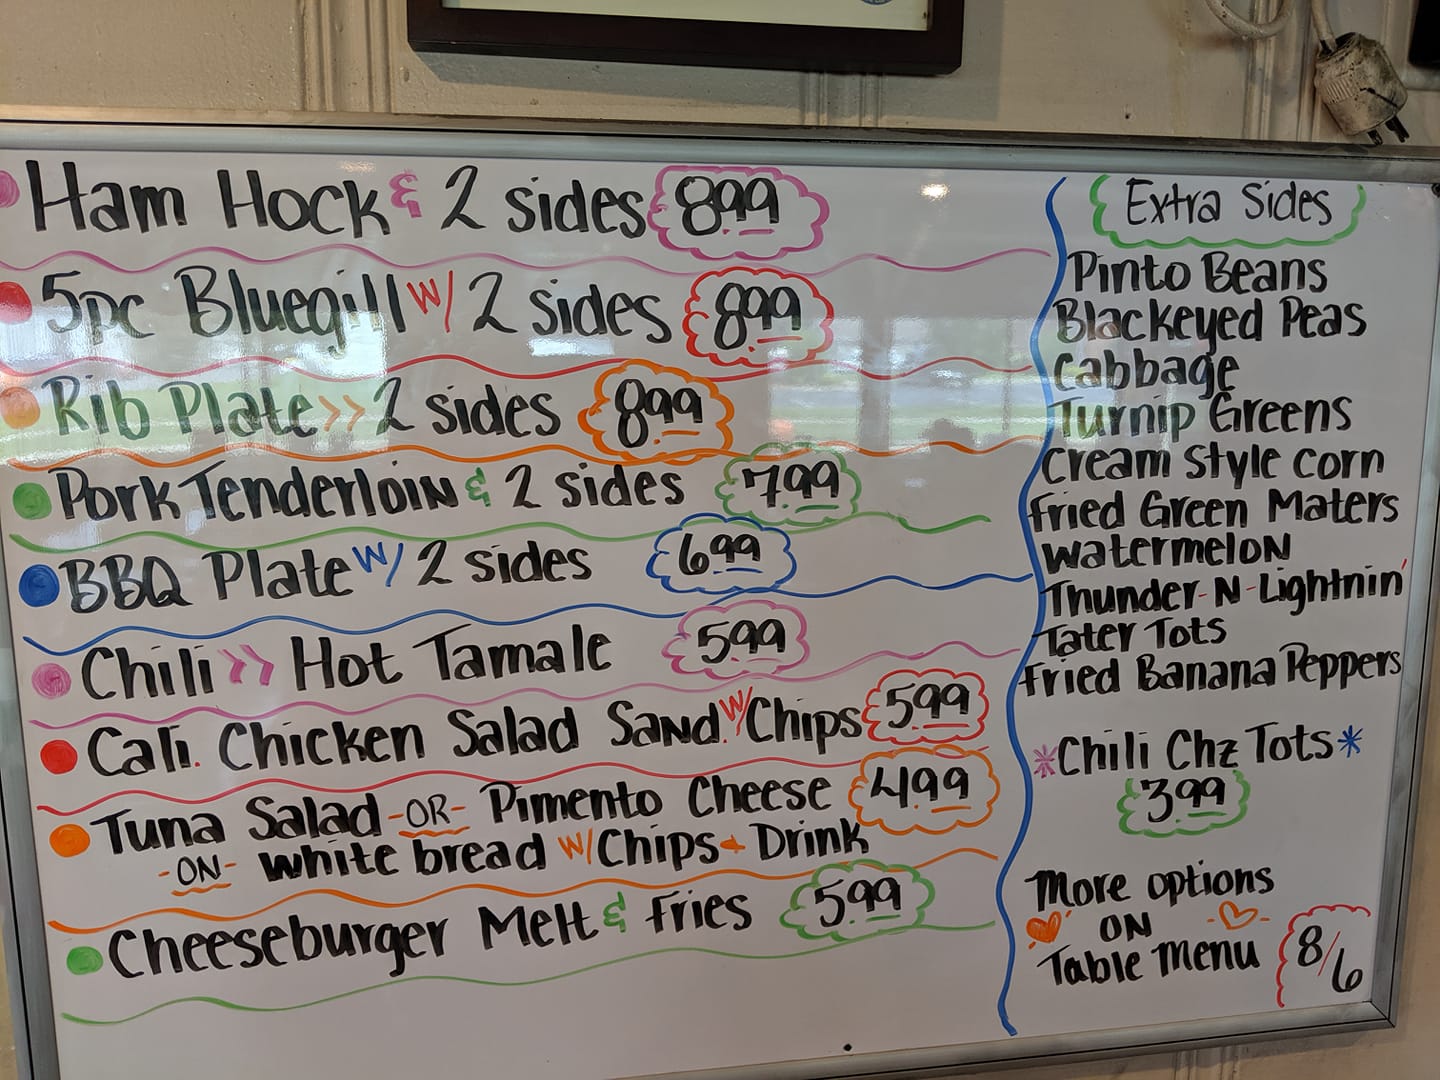 Ham Hock & 2 sides 8.99
5pc Bluegill w/ 2 sides 8.99
Rib Plate >> 2 sides 8.99
Pork Tenderloin & 2 sides 7.99
BBQ Plate w/ 2 sides 6.99
Chili >> Hot Tamale 5.99
Cali. Chicken Salad Sand. w/ Chips 5.99
Tuna Salad -OR- Pimento Cheese 4.99
-ON- white bread w/ Chips + Drink
Cheeseburger Melt & Fries 5.99
Extra Sides
Pinto Beans
Blackeyed Peas
Cabbage
Turnip Greens
Cream Style Corn
Fried Green Maters
Watermelon
Thunder-N-Lightnin'
Tater Tots
Fried Banana Peppers
*Chili Chz Tots*
3.99
More options
ON
Table Menu
8/6